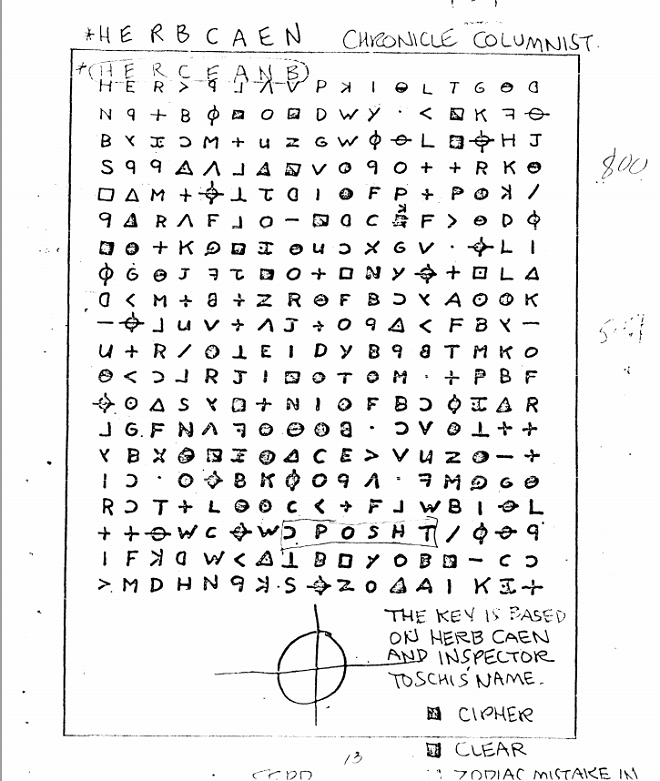 *HERB CAEN CHRONICLE COLUMNIST.
*(HERCEANB)
H E R > ꟼ ⅃ Λ V P ꓘ I ◒ L T G ◒ ᗡ
N 9 + B ϕ ◪ O ◪ D W Y · < ◪ K ꟻ ⦵
B Y I Ɔ M + U Z G W ϕ ⦵ L ◪ ⌖ H J
S 9 9 Δ Λ ⅃ ◭ ◪ V ◒ 9 O + + R K ◒
□ Δ M + ⌖ ⊥ T ᗡ I ◒ F P + P ◒ ꓘ /
9 ◭ R Λ F ⅃ O − ◪ ᗡ C F > ◒ D ϕ
■ ◒ + K ◒ ■ I ◒ U Ɔ X G V · ⌖ L I
ϕ G ◒ J ꟻ T ■ O + □ N Y ⌖ + □ L Δ
ᗡ < M + 8 + Z R ◒ F B Ɔ Y A ◒ ◒ K
− ⌖ ⅃ U V + Λ J + O 9 Δ < F B Y −
U + R / ◒ ⊥ E I D Y B 9 8 T M K O
◒ < Ɔ ⅃ R J I ■ ◒ T ◒ M · + P B F
⌖ O Δ S Y ■ + N I ◒ F B Ɔ ϕ I ◭ R
⅃ G F N Λ ꟻ ◒ ◒ ◒ 8 · Ɔ V ◒ ⊥ + +
Y B X ◒ ■ I ◒ Δ C E > V U Z ◒ − +
I Ɔ · O ⌖ B K ϕ O 9 Λ · ꟻ M ◒ G ◒
R Ɔ T + L ◒ ◒ C < + F ⅃ W B I ⦵ L
+ + ⦵ W C ⌖ W Ɔ P O S H T / ϕ ⦵ 9
I F ꓘ ᗡ W < Δ ⊥ B □ Y O B ■ − C Ɔ
> M D H N 9 ꓘ S ⌖ Z O ◭ A I K I +
800
THE KEY IS BASED
ON HERB CAEN
AND INSPECTOR
TOSCHI'S NAME.
CIPHER
CLEAR
13
ZODIAC MISTAKE IN